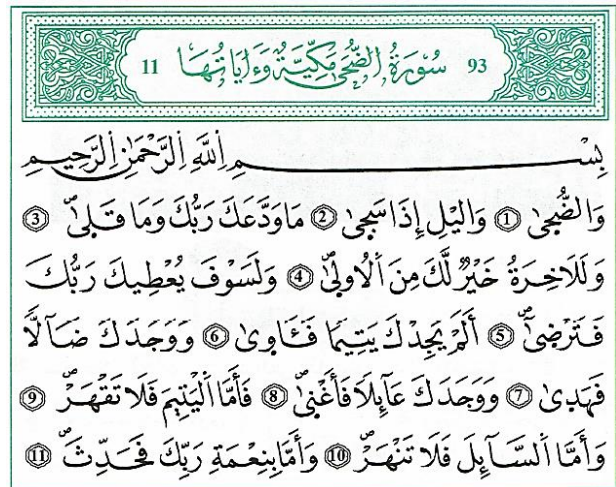 93 سُورَةُ الضُّحَىٰ مَكِّيَّةٌ وَءَايَاتُهَا 11
بِسْمِ اِ۬للَّهِ اِ۬لرَّحْمَٰنِ اِ۬لرَّحِيمِ
وَالضُّحَىٰ 1 وَالَيْلِ إِذَا سَجَىٰ 2 مَا وَدَّعَكَ رَبُّكَ وَمَا قَلَىٰ 3
وَلَلَاخِرَةُ خَيْرٌ لَّكَ مِنَ اَلُاولَىٰ 4 وَلَسَوْفَ يُعْطِيكَ رَبُّكَ
فَتَرْضَىٰ 5 أَلَمْ يَجِدْكَ يَتِيمًا فَـَٔاوَىٰ 6 وَوَجَدَكَ ضَآلًّا
فَهَدَىٰ 7 وَوَجَدَكَ عَآئِلًا فَأَغْنَىٰ 8 فَأَمَّا اَلْيَتِيمَ فَلَا تَقْهَرْ 9
وَأَمَّا اَلسَّآئِلَ فَلَا تَنْهَرْ 10 وَأَمَّا بِنِعْمَةِ رَبِّكَ فَحَدِّثْ 11